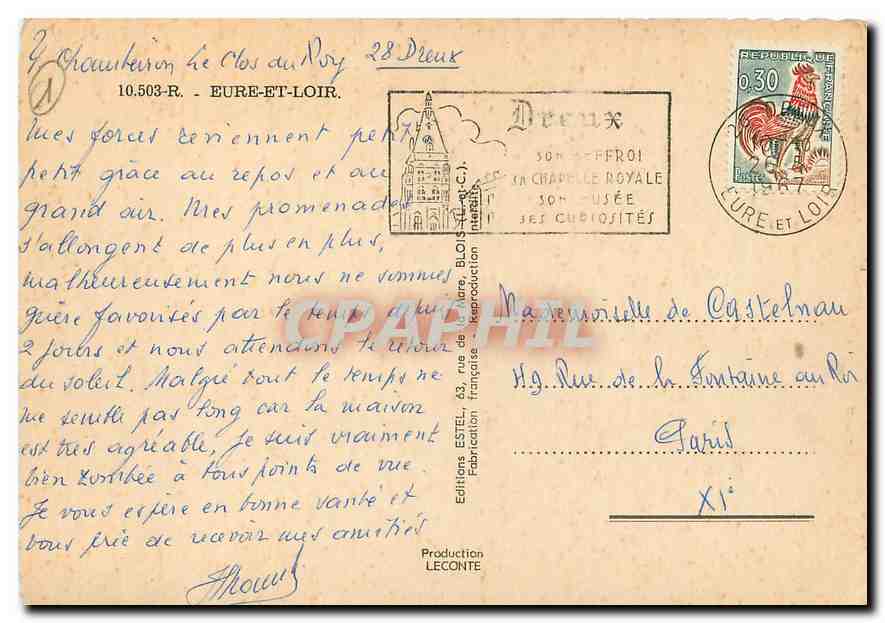 Le Clos du Roy 28 Dreux
1
10.503-R. - EURE-ET-LOIR.
Mes forces reviennent petit à
petit grâce au repos et au
grand air. Mes promenades
s'allongent de plus en plus,
malheureusement nous ne sommes
guère favorisés par le temps depuis
2 jours et nous attendons le retour
du soleil. Malgré tout le temps ne
me semble pas long car la maison
est très agréable, je suis vraiment
bien tombée à tous points de vue.
Je vous espère en bonne santé et
vous prie de recevoir mes amitiés
Dreux
SON BEFFROI
SA CHAPELLE ROYALE
SON MUSÉE
SES CURIOSITÉS
REPUBLIQUE FRANÇAISE
0,30
Postes
EURE ET LOIR
Editions ESTEL, 63, rue de la Mare, BLOIS (L.-et-C.).
Fabrication française - Reproduction interdite
CPAPHIL
Mademoiselle de Castelnau
49 Rue de la Fontaine au Roi
Paris
XIe
Production
LECONTE